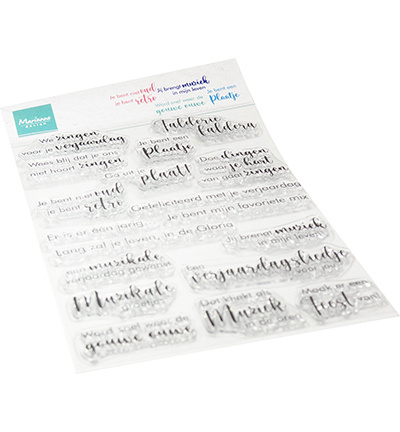 Je bent niet oud
je bent retro
Jij brengt muziek
in mijn leven
Word snel weer de
gouwe ouwe
Je bent een
Plaatje
Marianne
DESIGN
We zingen
voor je verjaardag
Wees blij dat je ons
niet hoort zingen
Talderie
taldera
Je bent een
Plaatje
Doe dingen
waar je hart
van gaat zingen
Ga uit je
plaat!
Je bent niet oud
je bent retro
Gefeliciteerd met je verjaardag
Je bent mijn favoriete mix
Er is er één jarig
Lang zal je leven, in de Gloria
Jij brengt muziek
in mijn leven
Een muzikale
verjaardag gewenst
Een
Verjaardagsliedje
voor jou!
Muzikale
groetjes
Dat klinkt als
Muziek
in de oren
Maak er een
feest van!
Word snel weer de
gouwe ouwe